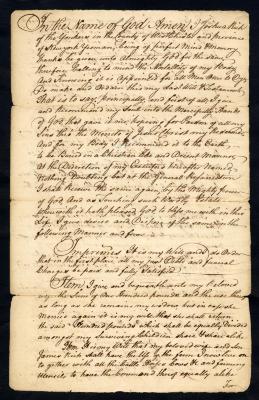 In the Name of God Amen I Joshua
of the Yonkers in the County of Westchester and Province
of New york Yeoman, being of perfect Mind & Memory
thanks be given unto Almighty God for the same
therefore Calling to mind the Mortality of my Body
And knowing it is Appointed for all Men Once to Dye
Do make And Ordain this my Last Will & Testament,
That is to say, principally and first of all, I give
and Recommend my Soul into the Merciful hands
of God that gave it me, hoping for Pardon of all my
Sins thro the Merits of Jesus Christ my
And for my Body I Recommend it to the Earth
to be buried in a Christian like and Decent Manner
at the Discretion of my Executors hereafter Named
Nothing Doubting but at the General Resurrection
I shall Receive the same again, by the Mighty power
of God And as Touching such Worldly Estate
wherewith it hath pleased God to bless me with in this
Life I give devise and dispose of the same in the
following Manner and form
Imprimis It is my Will and I do Order
that in the first place all my Just Debts and funeral
Charges be paid and fully Satisfied
Item I give and bequeath unto my beloved
wife the Sum of One Hundred pounds and the use thereof
as long as she remain my widow but in case she
Marrie again it is my will that she shall return
the said Hundred pounds which shall be equally Devided
amongst my Surviving Children share & share alike
Item It is my Will that my beloved wife and Son
James shall have the use of the farm I now live on
to gether with all the Cattle Horses Cows &c and farming
Utensils to have the Command thereof equally alike